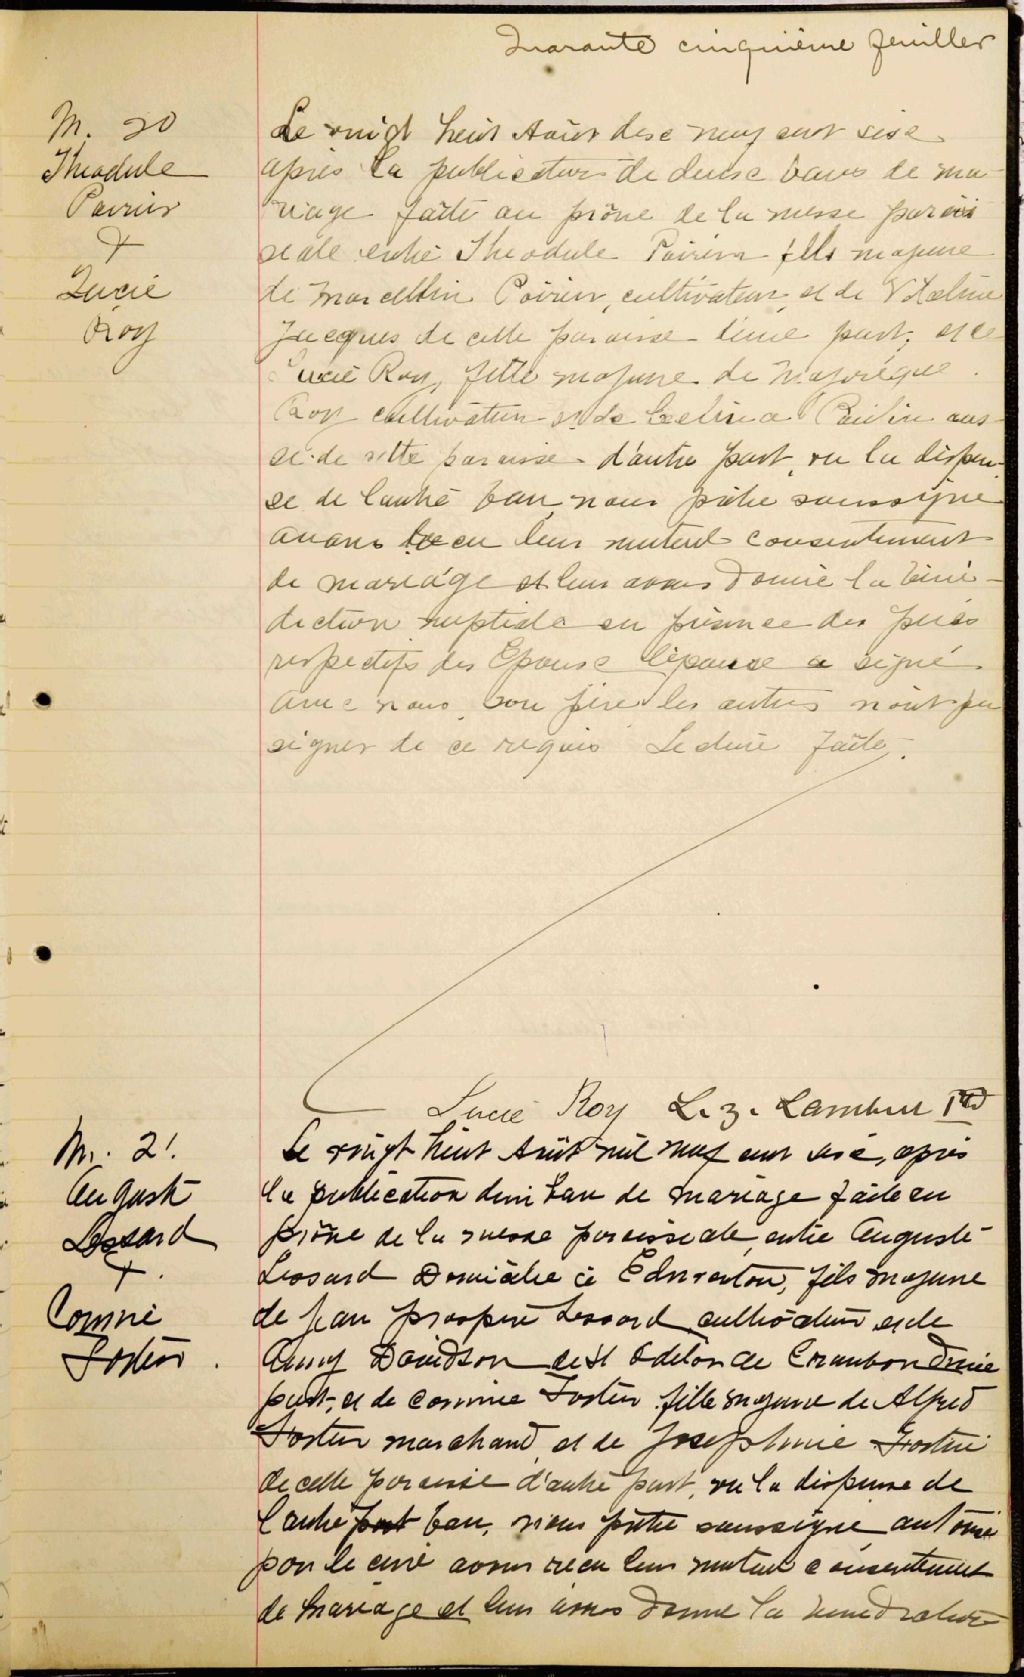 Quarante cinquième feuillet
M. 20
Theodule
Poirier
+
Lucie
Roy
Le vingt huit Août dix neuf cent seize
après la publication de deux bans de ma-
riage faite au prône de la messe parois
siale entre Theodule Poirier fils majeure
de Marcellin Poirier, cultivateur, et de Vitaline
Jacques de cette paroisse d'une part; et de
Lucie Roy, fille majeure de
Roy cultivateur et de Celina aus-
si de cette paroisse d'autre part, vu la dispen-
se de l'autre ban, nous prêtre soussigné
avons recu leur mutuel consentement
de mariage et leur avons donné la béné-
diction nuptiale en présence des pères
respectifs des Epoux L'épouse a signé
avec nous, son père les autres n'ont pu
signer de ce requis Lecture faite.
Lucie Roy L. Z. Lambert Ptr
M. 21.
Auguste
Lessard
+
Corinne
Fortier
Le vingt huit Août mil neuf cent seize, après
la publication d'un ban de mariage faite au
prône de la messe paroissiale, entre Auguste
Lessard Domicilié à Edmonton, fils majeure
de Jean Prospère Lessard cultivateur et de
Amy Davidson de St Odilon de Cranbourne d'une
part, et de Corinne Fortier fille majeure de Alfred
Fortier marchand, et de Josephine Fortier
de cette paroisse d'autre part, vu la dispense de
l'autre ban, nous prêtre soussigné, autorisé
par le curé avons recu leur mutuel consentement
de mariage et leur avons donné la bénédiction